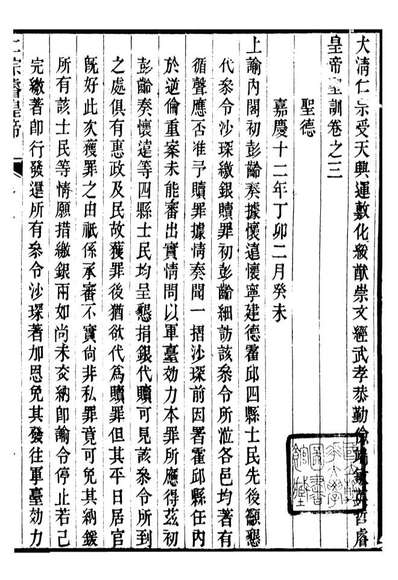 大淸仁宗受天興運敷化綏猷崇文經武孝恭勤儉端敏英哲睿
皇帝聖訓卷之三
聖德
嘉慶十二年丁卯二月癸未
上諭內閣初彭齡奏據懷遠懷寧建德霍邱四縣士民先後籲懇
代叅令沙琛繳銀贖罪初彭齡細訪該叅令所涖各邑均著有
循聲應否准予贖罪據情奏聞一摺沙琛前因署霍邱縣任內
於逆倫重案未能審出實情問以軍臺効力本罪所應得茲初
彭齡奏懷遠等四縣士民均呈懇捐銀代贖可見該叅令所到
之處俱有惠政及民故獲罪後猶欲代爲贖罪但其平日居官
旣好此次獲罪之由祇係承審不實尙非私罪竟可免其納鍰
所有該士民等情願措繳銀兩如尙未交納卽諭令停止若已
完繳著卽行發還所有叅令沙琛著加恩免其發往軍臺効力
仁宗睿皇帝